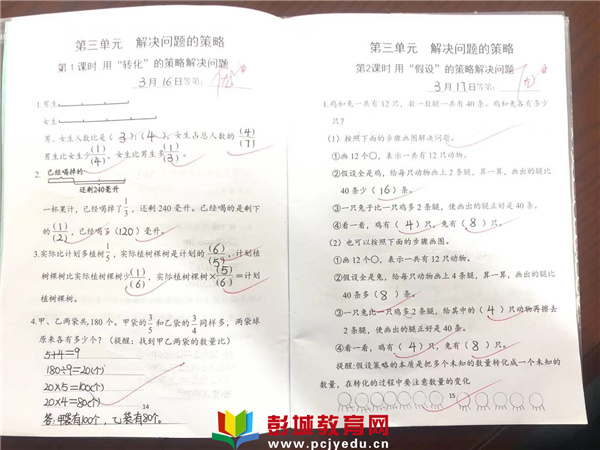 第三单元 解决问题的策略
第1课时 用“转化”的策略解决问题
3月16日等第:
1.男生
女生
男、女生人数比是(3):(4),女生占总人数的(4)/(7)
男生比女生少(1)/(4),女生比男生多(1)/(3)。
2. 已经喝掉的
还剩240毫升
一杯果汁,已经喝掉了1/3,还剩240毫升。已经喝的是剩下
的(1)/(2),已经喝了(120)毫升。
3.实际比计划多植树1/5,实际植树棵树是计划的(6)/(5),计划植
树棵树比实际植树棵树少(1)/(6),实际植树棵树×(5)/(6)=计划
植树棵树。
4.甲、乙两袋共180个。甲袋的3/5和乙袋的3/4同样多,两袋球
原来各有多少个?(提醒:找到甲乙两袋的数量比)
5+4=9
180÷9=20(个)
20×5=100(个)
20×4=80(个)
答:甲袋有100个,乙袋有80个。
14
第三单元 解决问题的策略
第2课时 用“假设”的策略解决问题
3月17日等第:
1.鸡和兔一共有12只,数一数腿一共有40条。鸡和兔各有多少
只?
(1)按照下面的步骤画图解决问题。
①画12个○,表示一共有12只动物。
②假设全是鸡,给每只动物画上2条腿,算一算,画出的腿比
40条少(16)条。
③一只兔子比一只鸡多2条腿,使画出的腿正好是40条。
④看一看,鸡有(4)只,兔有(8)只。
(2)也可以按照下面的步骤画图。
①画12个○,表示一共有12只动物。
②假设全是兔,给每只动物画上4条腿,算一算,画出的腿比
40条多(8)条。
③一只兔比一只鸡多2条腿,给其中的(4)只动物再擦去
2条腿,使画出的腿正好是40条。
④看一看,鸡有(4)只,兔有(8)只。
提醒:假设策略的本质是把多个未知的数量转化成一个未知的
数量,在转化的过程中要注意数量的变化
15
彭城教育网
www.pcjyedu.cn